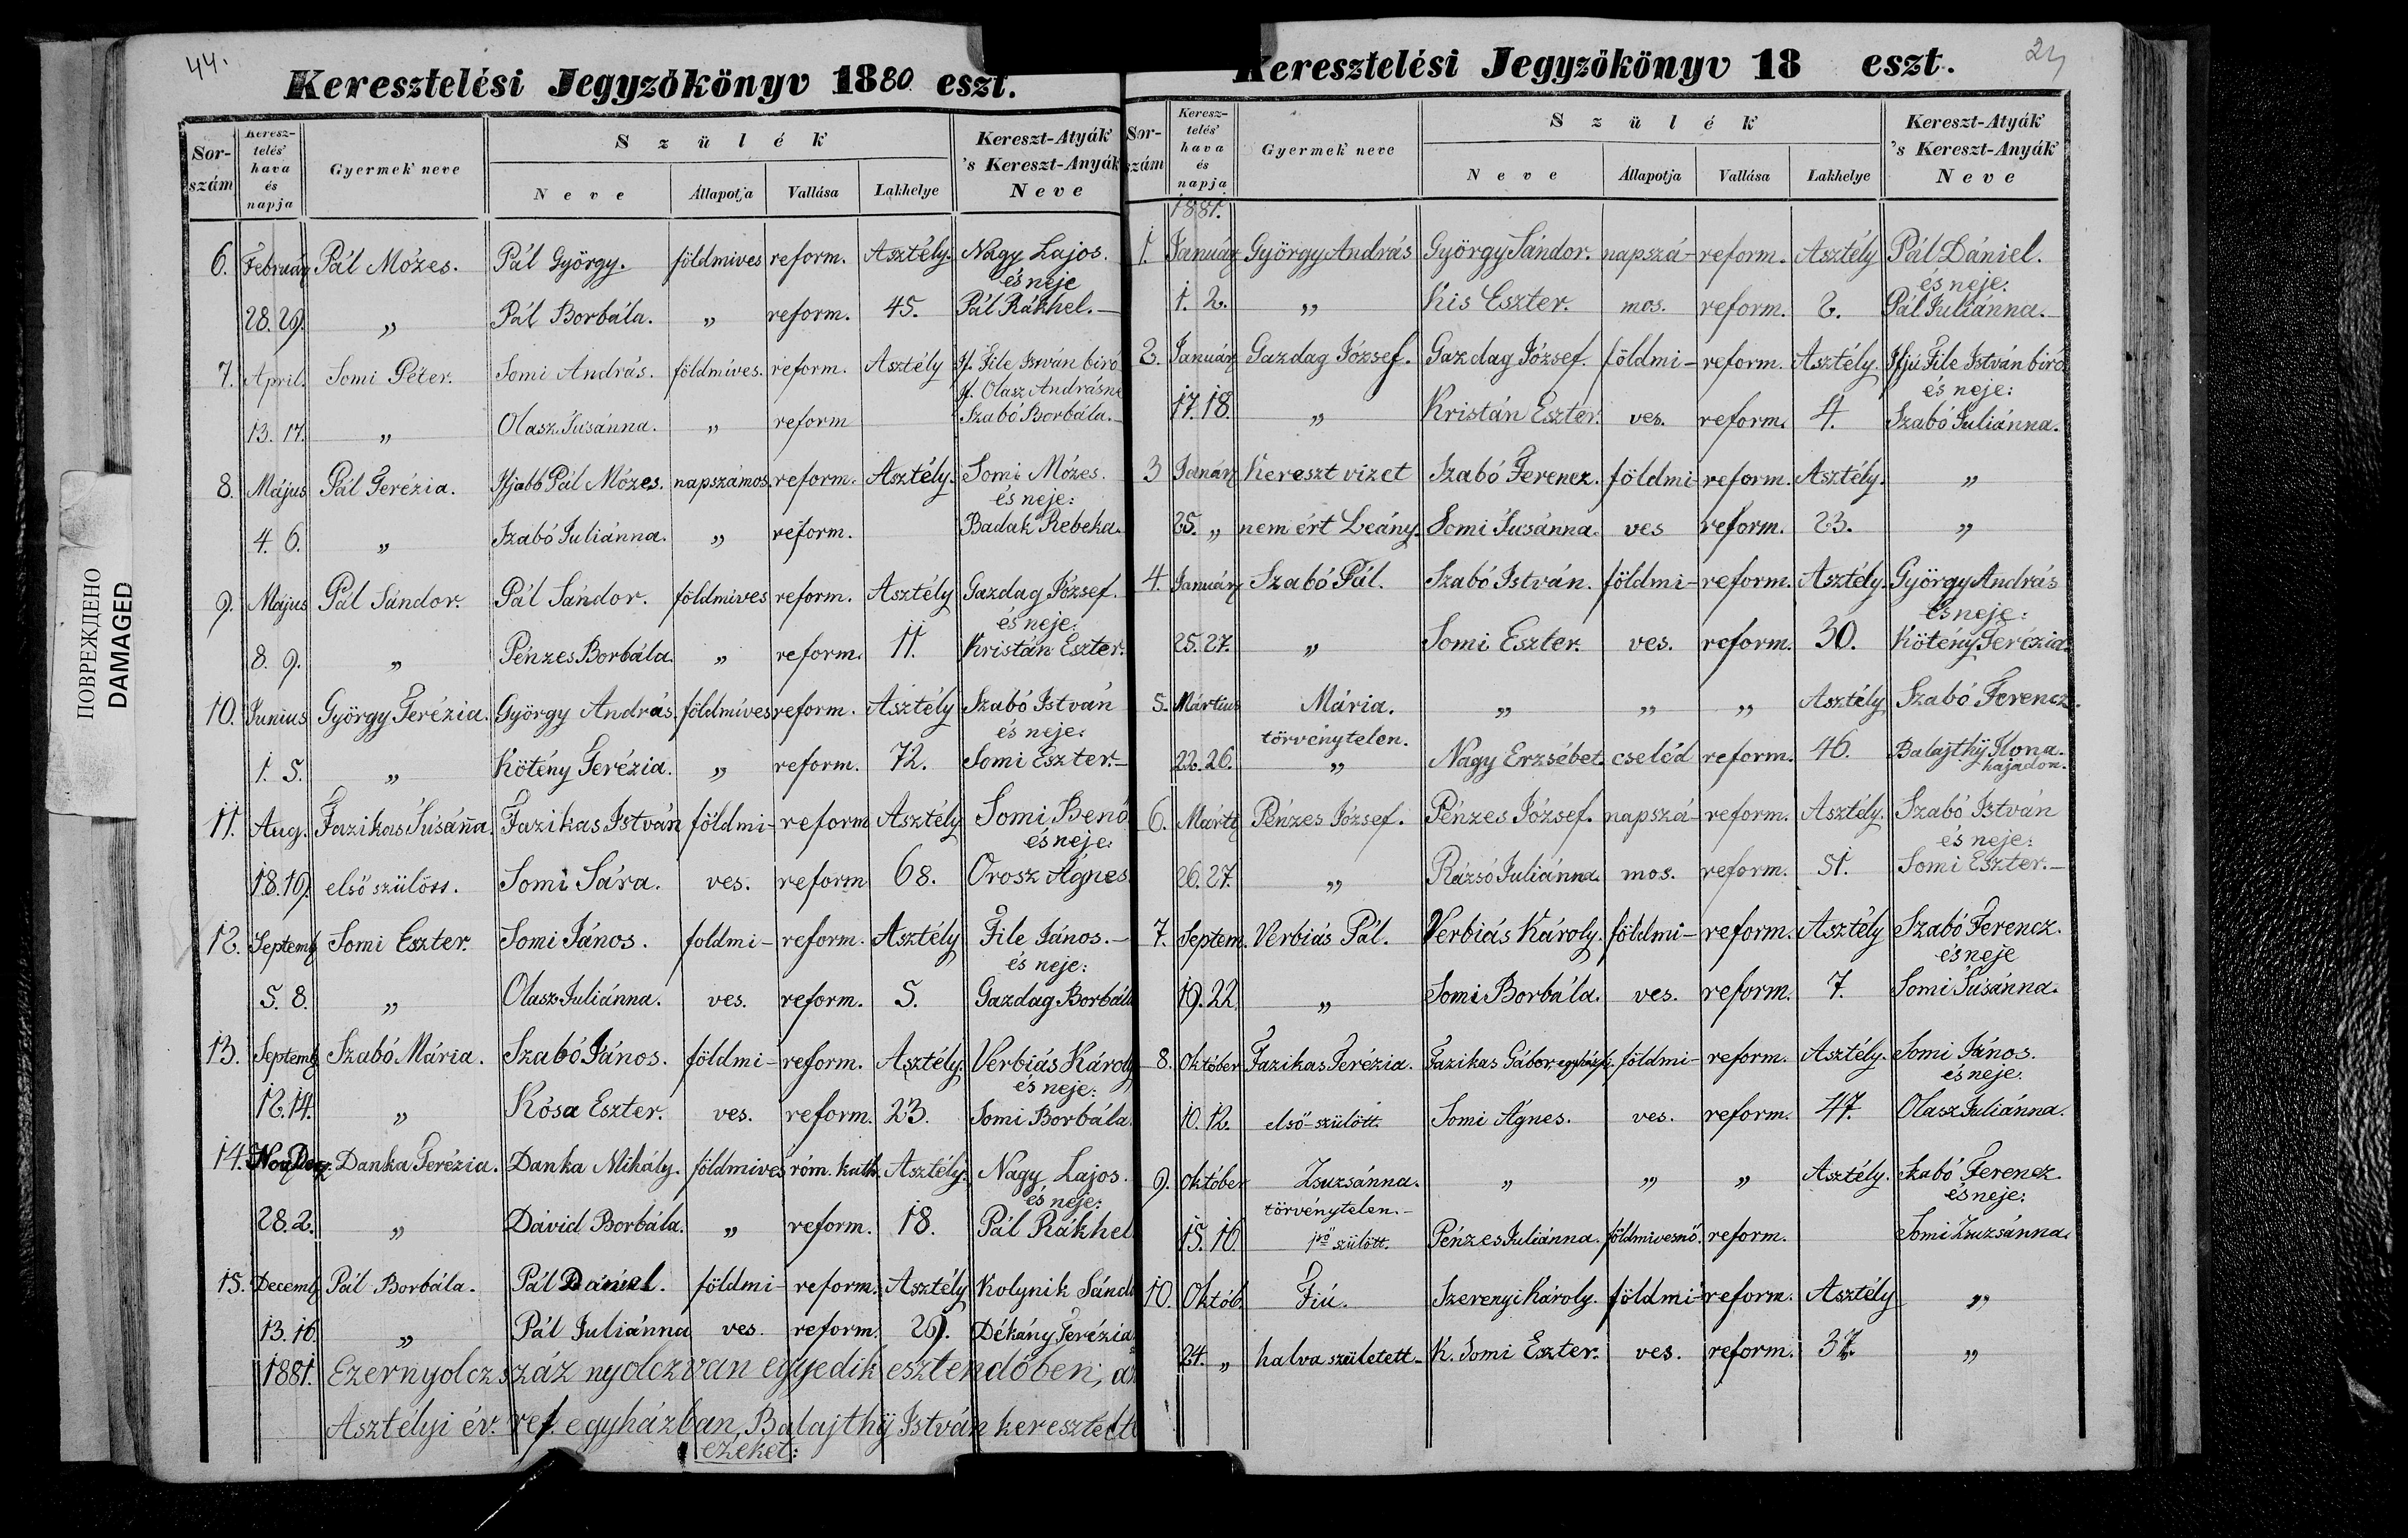 44.
Keresztelési Jegyzőkönyv 1880 eszt.
Sor-szám Keresz-telés' hava és napja Gyermek neve Szülék Kereszt-Atyák 's Kereszt-Anyák Neve
Neve Állapotja Vallása Lakhelye
6. Február Pál Mózes. Pál György. földmives reform. Asztély. Nagy Lajos.
és neje
28. 29. „ Pál Borbála. „ reform. 45. Pál Rákhel.
7. April. Somi Péter. Somi András. földmíves. reform. Asztély If. File István biró
If. Olasz Andrásne
13. 17. „ Olasz Susánna. „ reform Szabó Borbála.
8. Május Pál Terézia. Ifjabb Pál Mózes. napszámos. reform. Asztély. Somi Mózes.
és neje:
4. 6. „ Szabó Juliánna. „ reform. Badak Rebeka.
9. Május Pál Sándor. Pál Sándor. földmives reform. Asztély Gazdag József.
és neje:
8. 9. „ Pénzes Borbála. „ reform. 11. Kristán Eszter.
10. Junius György Terézia. György András. földmíves reform. Asztély Szabó István
és neje:
1. 5. „ Kötény Terézia. „ reform. 72. Somi Eszter.
11. Aug. Fazikas Susánna. Fazikas István földmi- reform Asztély Somi Benő
és neje:
18. 19. első szülött. Somi Sára. ves. reform 68. Orosz Ágnes
12. Septemb Somi Eszter. Somi János. foldmi- reform. Asztély File János.
és neje:
5. 8. „ Olasz Juliánna. ves. reform. 5. Gazdag Borbála
13. Septemb Szabó Mária. Szabó János. földmi- reform. Asztély. Verbiás Károly
és neje:
12. 14. „ Kósa Eszter. ves. reform. 23. Somi Borbála.
14. Nov. Dec. Danka Terézia. Danka Mihály. földmives róm. kath. Asztély. Nagy Lajos.
és neje:
28. 2. „ Dávid Borbála. „ reform. 18. Pál Rákhel
15. Decemb Pál Borbála. Pál Dániel. földmi- reform. Asztély Kolynik Sánd
13. 16. „ Pál Juliánna ves. reform. 29. Dékány Terézia
1881. Ezernyolczszáz nyolczvan egyedik esztendőben, az
Asztélyi év. ref. egyházban, Balajthÿ István keresztelt
ezeket:
Keresztelési Jegyzőkönyv 18 eszt.
Sor-szám Keresz-telés' hava és napja Gyermek neve Szülék Kereszt-Atyák 's Kereszt-Anyák Neve
Neve Állapotja Vallása Lakhelye
1881.
1. Január György András György Sándor. napszá- reform. Asztély Pál Dániel.
és neje:
1. 2. „ Kis Eszter. mos. reform. 2. Pál Juliánna.
2. Január Gazdag József. Gazdag József. földmi- reform. Asztély. Ifjú File István biró
és neje:
17. 18. „ Kristán Eszter. ves. reform. 4. Szabó Juliánna.
3 Janár Kereszt vizet Szabó Ferencz. földmi- reform. Asztély. „
25. „ nem ért Leány. Somi Susánna. ves reform. 23. „
4. Január Szabó Pál. Szabó István. földmi- reform. Asztély. György András
és neje:
25. 27. „ Somi Eszter. ves. reform. 30. Kötény Terézia.
5. Mártius Mária. „ „ „ Asztély Szabó Ferencz.
törvénytelen.
22. 26. „ Nagy Erzsébet. cseléd reform. 46. Balajthÿ Ilona.
hajadon.
6. Márti Pénzes József. Pénzes József. napszá- reform. Asztély. Szabó István
és neje:
26. 27. „ Rázsó Juliánna. mos. reform. 51. Somi Eszter.
7. Septem. Verbiás Pál. Verbiás Károly. földmi- reform. Asztély Szabó Ferencz.
és neje
19. 22. „ Somi Borbála. ves. reform. 7. Somi Susánna.
8. Október Fazikas Terézia. Fazikas Gábor, földmi- reform. Asztély. Somi János.
és neje.
10. 12. első-szülött. Somi Ágnes. ves. reform. 47. Olasz Juliánna.
9. Október Zsuzsánna. „ „ „ Asztély. Szabó Ferencz.
törvénytelen.- és neje:
15. 16. 1ső szülött. Pénzes Juliánna. földmivesnő. reform. Somi Zsuzsánna.
10. Októb. Fiú. Szerenyi Károly. földmi- reform. Asztély „
24. „ halva született. K. Somi Eszter. ves. reform. 37. „
ПОВРЕЖДЕНО
DAMAGED